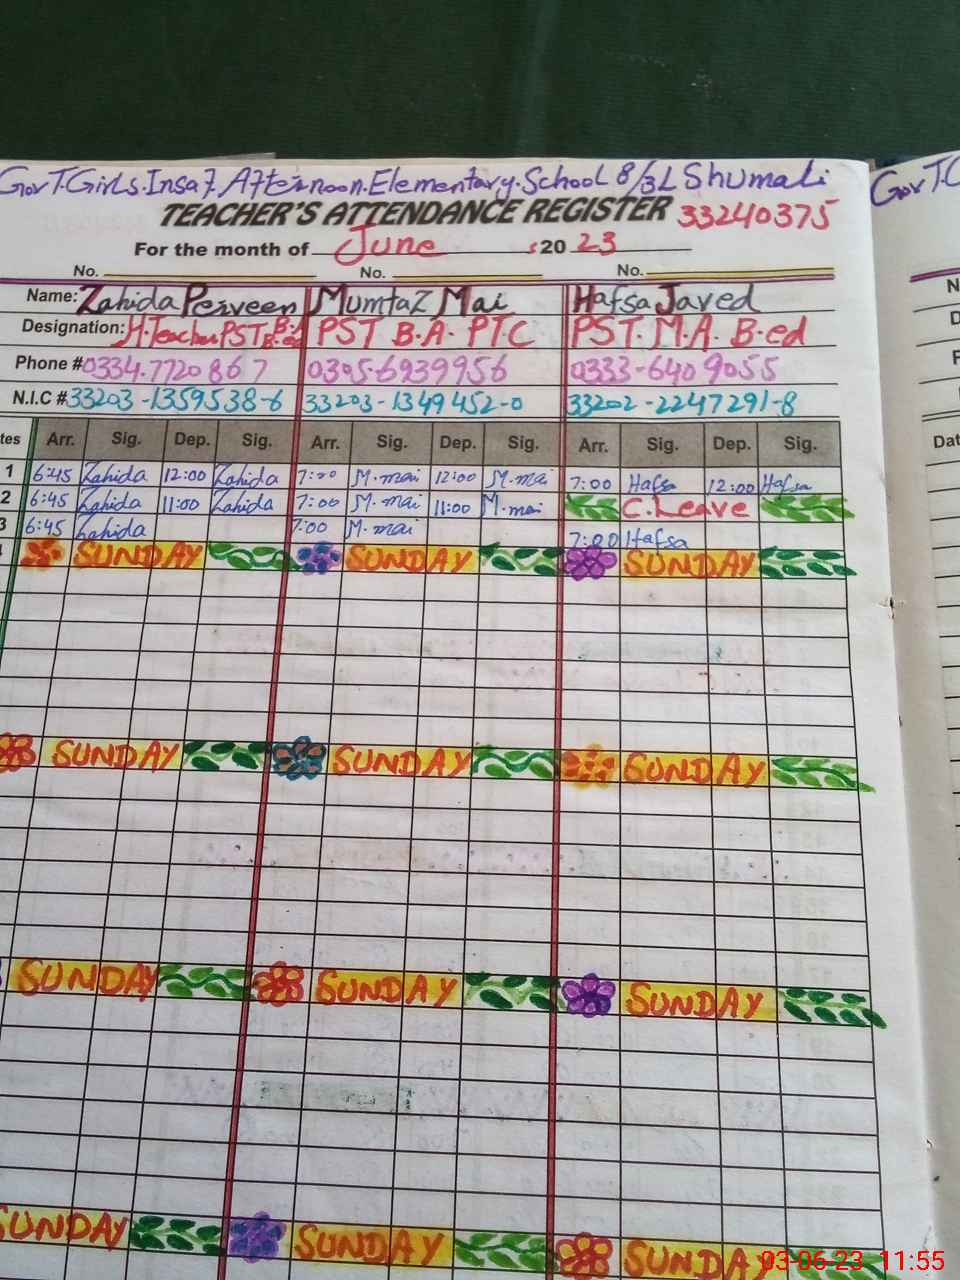 GovT.Girls.Insaf.Afternoon.Elementary.School 8/3L Shumali
GovT.G
TEACHER'S ATTENDANCE REGISTER 33240375
For the month of June 20 23
No. No. No.
Name: Zahida Perveen Mumtaz Mai Hafsa Javed
Designation: H.Teacher PST B.A PST B.A. PTC PST. M.A. B.ed
Phone # 0334.7720867 0305-6939956 0333-6409055
N.I.C # 33203-1359538-6 33203-1349452-0 33202-2247291-8
tes Arr. Sig. Dep. Sig. Arr. Sig. Dep. Sig. Arr. Sig. Dep. Sig.
Dat
1 6:45 Zahida 12:00 Zahida 7:00 M.mai 12:00 M.mai 7:00 Hafsa 12:00 Hafsa
2 6:45 Zahida 11:00 Zahida 7:00 M.mai 11:00 M.mai C.Leave
3 6:45 Zahida 7:00 M.mai 7:00 Hafsa
SUNDAY SUNDAY SUNDAY
SUNDAY SUNDAY SUNDAY
SUNDAY SUNDAY SUNDAY
SUNDAY SUNDAY SUNDAY
03-06-23 11:55